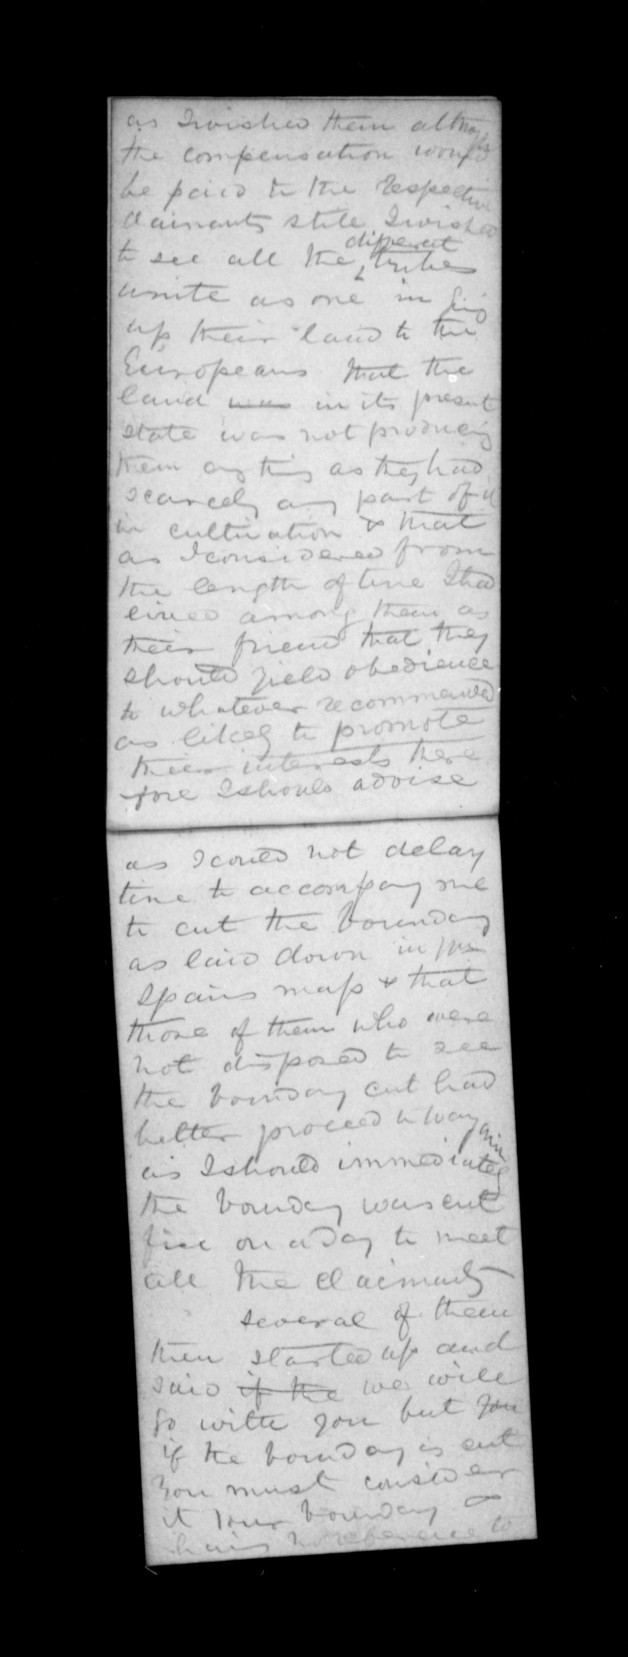 as I wished them altho
the compensation would
be paid to the respective
claimants still I wished
to see all the different tribes
unite as one in giving
up their land to the
Europeans that the
land was in its present
state was not producing
them any thing as they had
scarcely any part of it
in cultivation & that
as I considered from
the length of time I had
lived among them as
their friend that they
should yield obedience
to whatever recommended
as likely to promote
their interests there
fore I should advise
as I could not delay
time to accompany me
to cut the boundary
as laid down in Mr
Spains map & that
those of them who were
not disposed to see
the boundary cut had
better proceed to
as I should immediately
the boundary was cut
fix on a day to meet
all the claimants
several of them
then started up and
said if the we will
go with you but you
if the boundary is cut
you must consider
it your boundary &
having no reference to